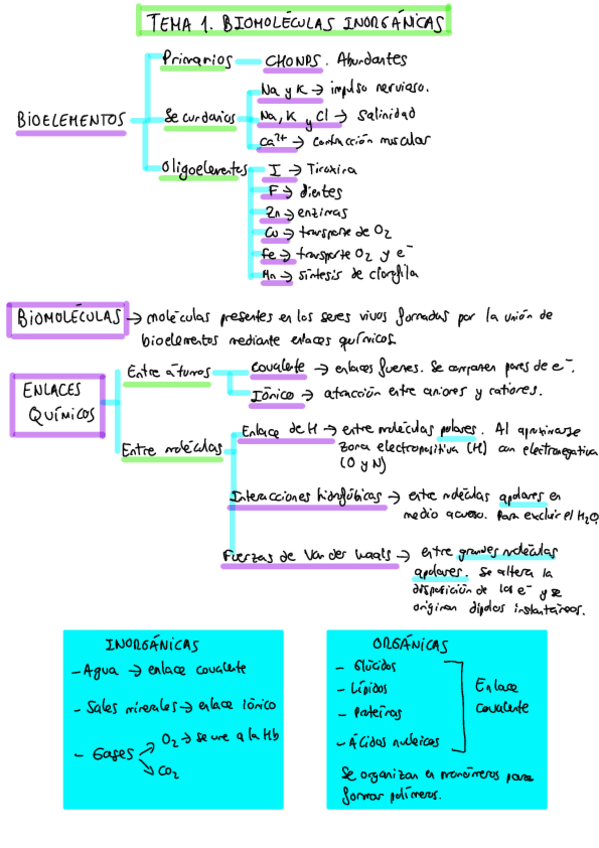 TEMA 1. BIOMOLÉCULAS INORGÁNICAS
BIOELEMENTOS
Primarios
CHONPS. Abundantes
Secundarios
Na y K → impulso nervioso.
Na, K y Cl → salinidad
Ca²⁺ → contracción muscular
Oligoelementos
I → Tiroxina
F → dientes
Zn → enzimas
Cu → transporte de O₂
Fe → transporte O₂ y e⁻
Mn → síntesis de clorofila
BIOMOLÉCULAS → moléculas presentes en los seres vivos formadas por la unión de
bioelementos mediante enlaces químicos.
ENLACES
QUÍMICOS
Entre átomos
Covalente → enlaces fuertes. Se comparten pares de e⁻.
Iónico → atracción entre aniones y cationes.
Entre moléculas
Enlace de H → entre moléculas polares. Al aproximarse
zona electropositiva (H) con electronegativa
(O y N)
Interacciones hidrofóbicas → entre moléculas apolares en
medio acuoso. Para excluir el H₂O
Fuerzas de Van der Waals → entre grandes moléculas
apolares. Se altera la
disposición de los e⁻ y se
originan dipolos instantáneos.
INORGÁNICAS
- Agua → enlace covalente
- Sales minerales → enlace iónico
- Gases
O₂ → se une a la Hb
CO₂
ORGÁNICAS
- Glúcidos
- Lípidos
- Proteínas
- Ácidos nucleicos
Enlace
covalente
Se organizan en monómeros para
formar polímeros.